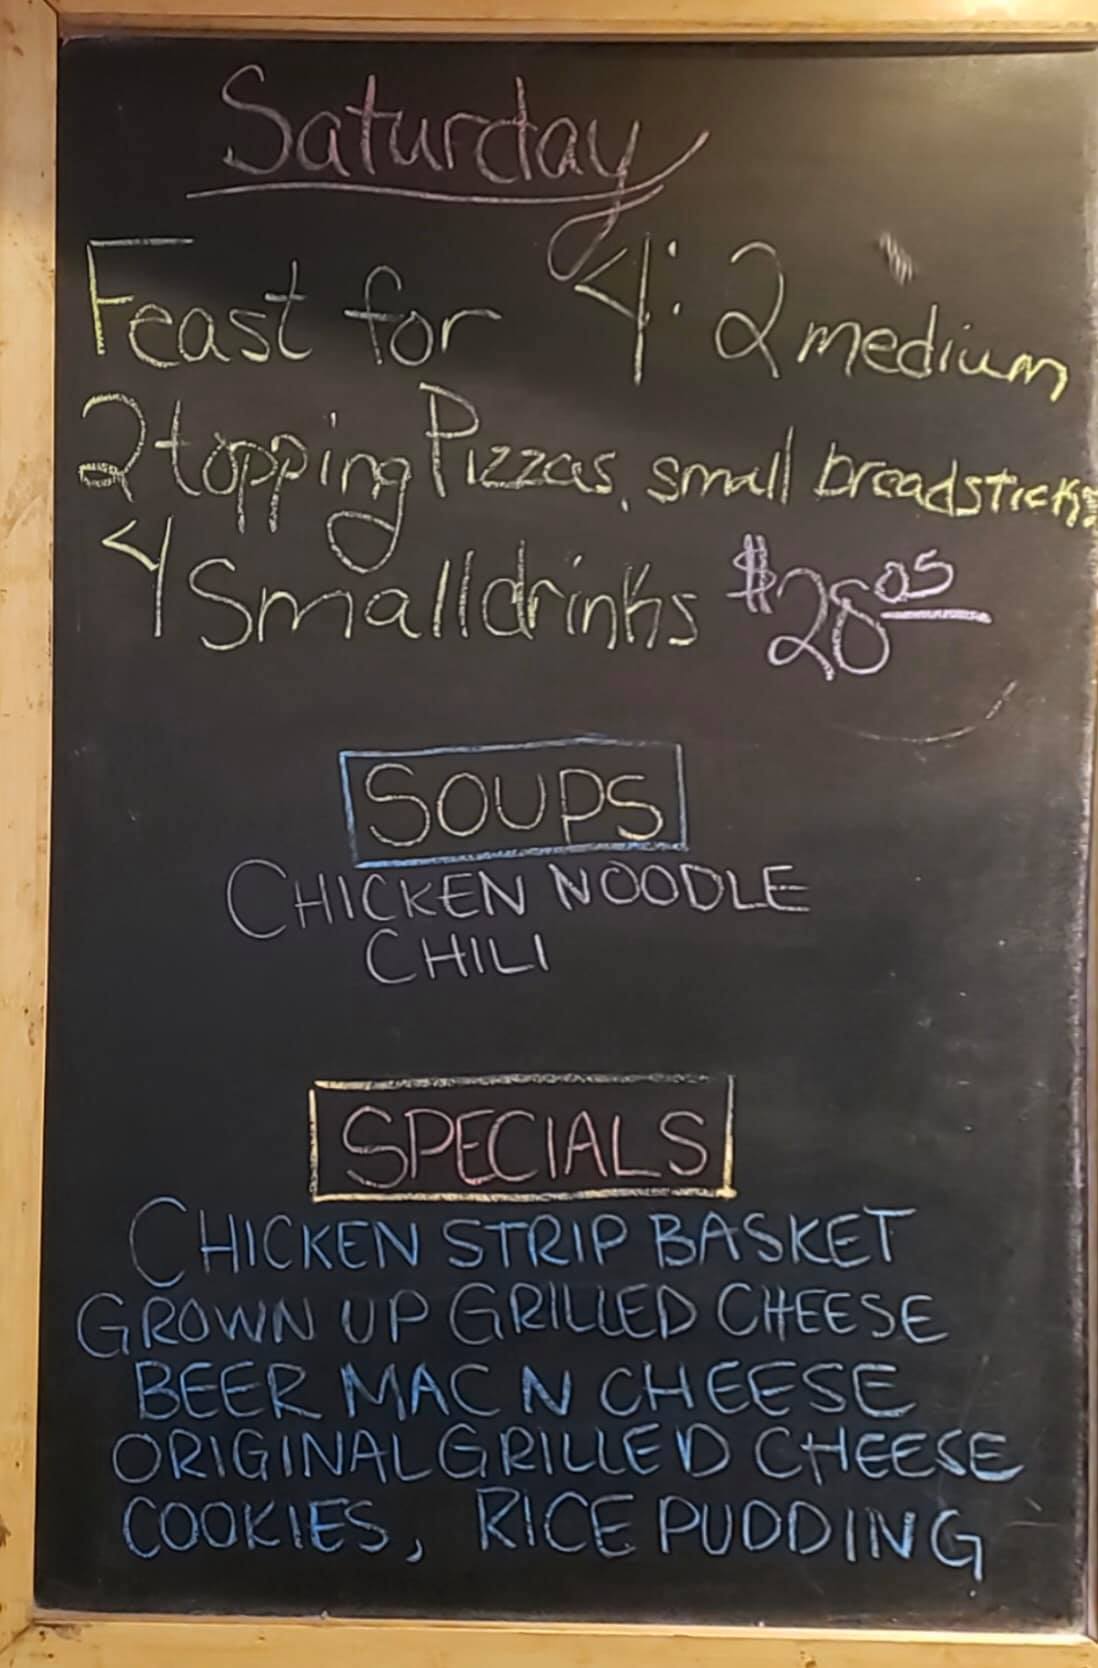 Saturday
Feast for 4: 2 medium
2 topping Pizzas, small breadsticks
4 Small drinks $28.05
SOUPS
CHICKEN NOODLE
CHILI
SPECIALS
CHICKEN STRIP BASKET
GROWN UP GRILLED CHEESE
BEER MAC N CHEESE
ORIGINAL GRILLED CHEESE
COOKIES, RICE PUDDING